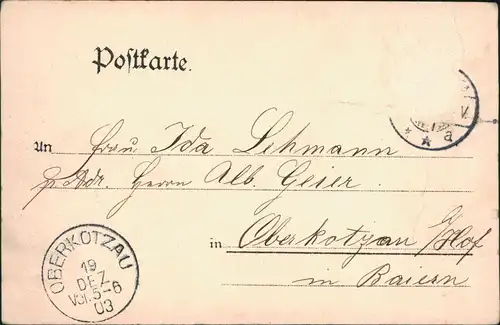 Postkarte.
V
* * a
An Frau Ida Lehmann
p. Adr. Herrn Alb. Geier.
in Oberkotzau / Hof
in Baiern
OBERKOTZAU
19
DEZ.
Vor. 5-6
03